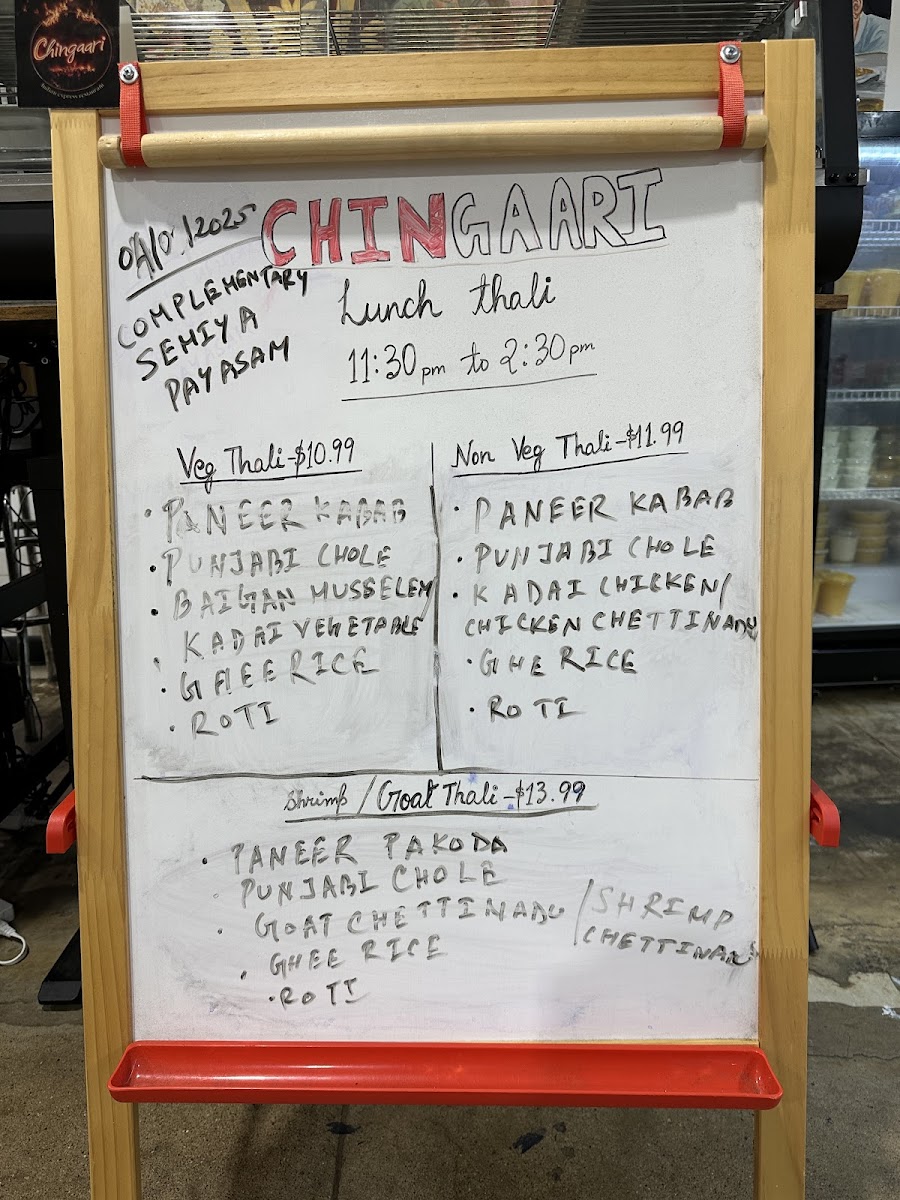 Chingaari
CHINGAARI
COMPLEMENTARY
SEMIYA
PAYASAM
Lunch thali
11:30 pm to 2:30 pm
Veg Thali-$10.99
• PANEER KABAB
• PUNJABI CHOLE
• BAIGAN MUSSELEM/
KADAI VEGETABLE
• GHEE RICE
• ROTI
Non Veg Thali-$11.99
• PANEER KABAB
• PUNJABI CHOLE
• KADAI CHICKEN/
CHICKEN CHETTINADU
• GHE RICE
• ROTI
Shrimp / Goat Thali-$13.99
• PANEER PAKODA
PUNJABI CHOLE
• GOAT CHETTINADU / SHRIMP
CHETTINADU
• GHEE RICE
• ROTI